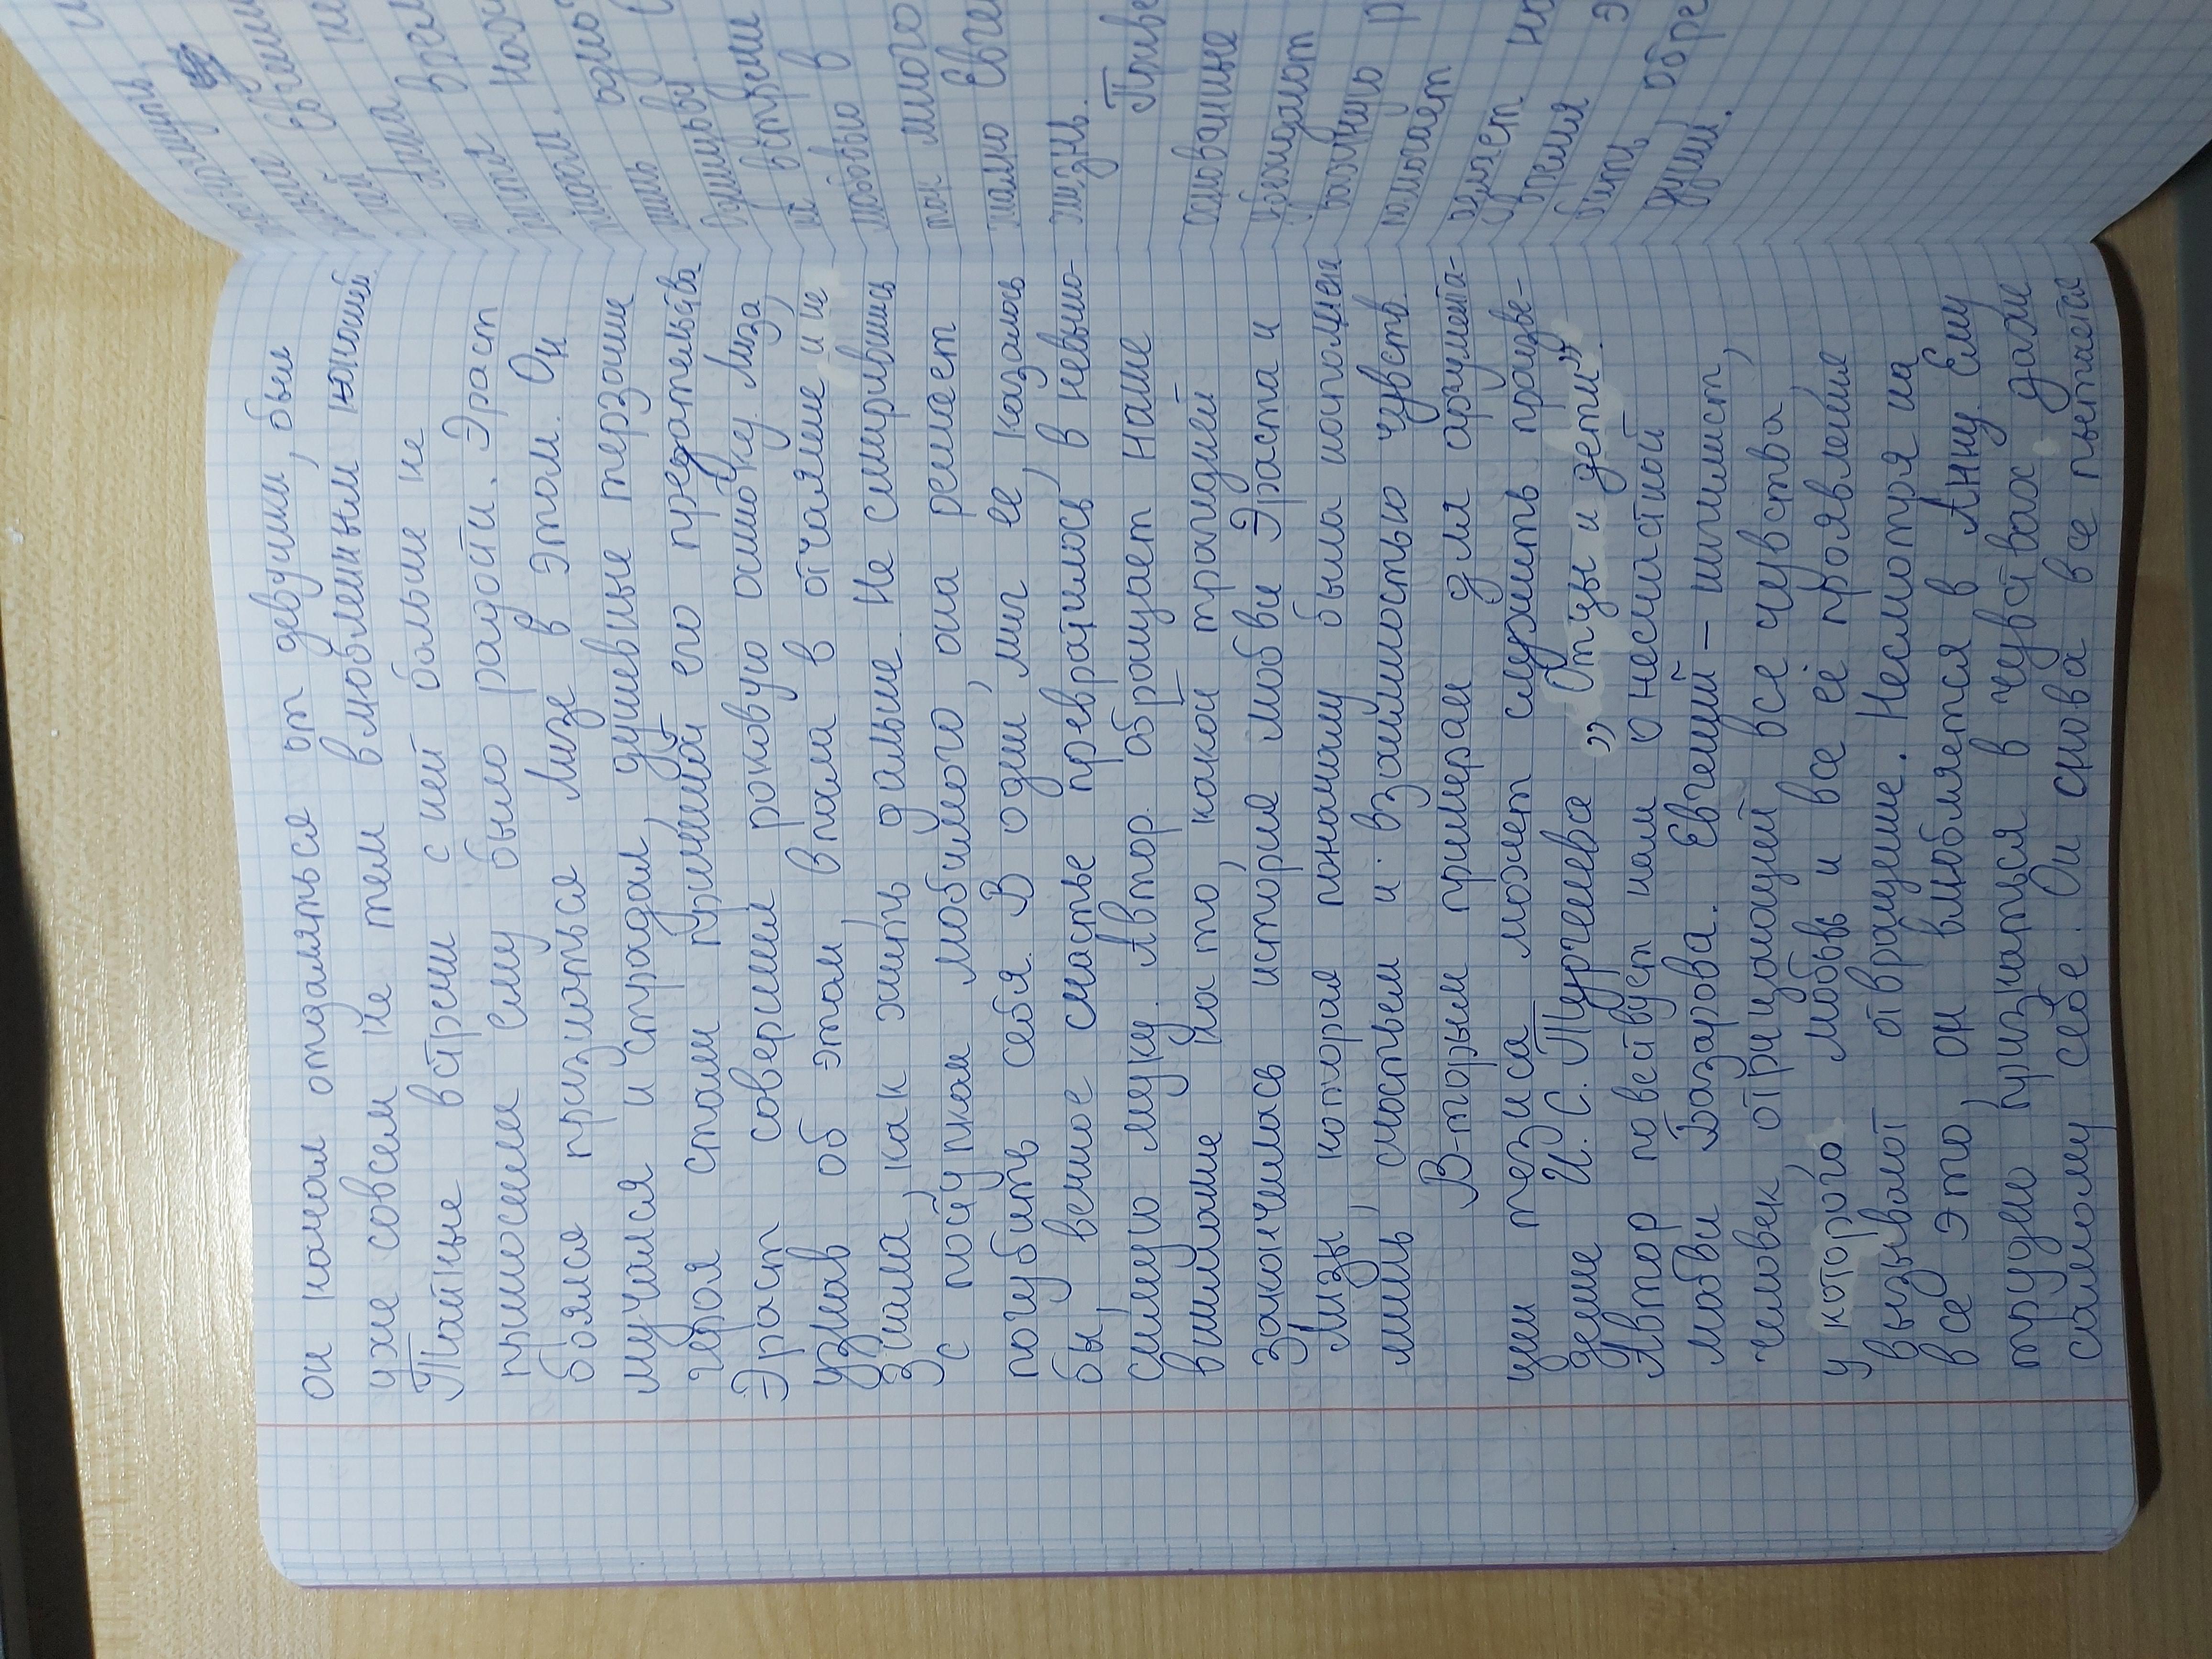 он начал отдаляться от девушки, был
уже совсем не тем влюбленным юношей
Тайные встречи с ней больше не
приносили ему было радости. Эраст
боялся признаться Лизе в этом. Он
мучался и страдал, душевные терзание
героя стали причиной его предательства
Эраст совершил роковую ошибку. Лиза,
узнав об этом, впала в отчаяние и не
знала, как жить дальше. Не смирившись
с поступком любимого, она решает
погубить себя. В один миг ее, казалось
бы, вечное счастье превратилось в невыно-
симую муку. Автор обращает наше
внимание на то, какой трагидией
закончилась история любви Эраста и
Лизы, которая поначалу была наполнена
лишь счастьем и взаимностью чувств.
В-торым примерам для аргумента-
ции тезиса может служить произве-
дение И.С. Тургенева „Отцы и дети".
Автор повествует нам о несчастной
любви Базарова. Евгений – нигилист,
человек отрицающей все чувства,
у которого любовь и все её проявление
вызывают отвращение. Несмотря на
все это, он влюбляется в Анну. Ему
трудно признаться в чувствах даже
самому себе. Он снова все пытается
встречи
любовью в
так много
жизнь.
Приве
помогает
время э
души.